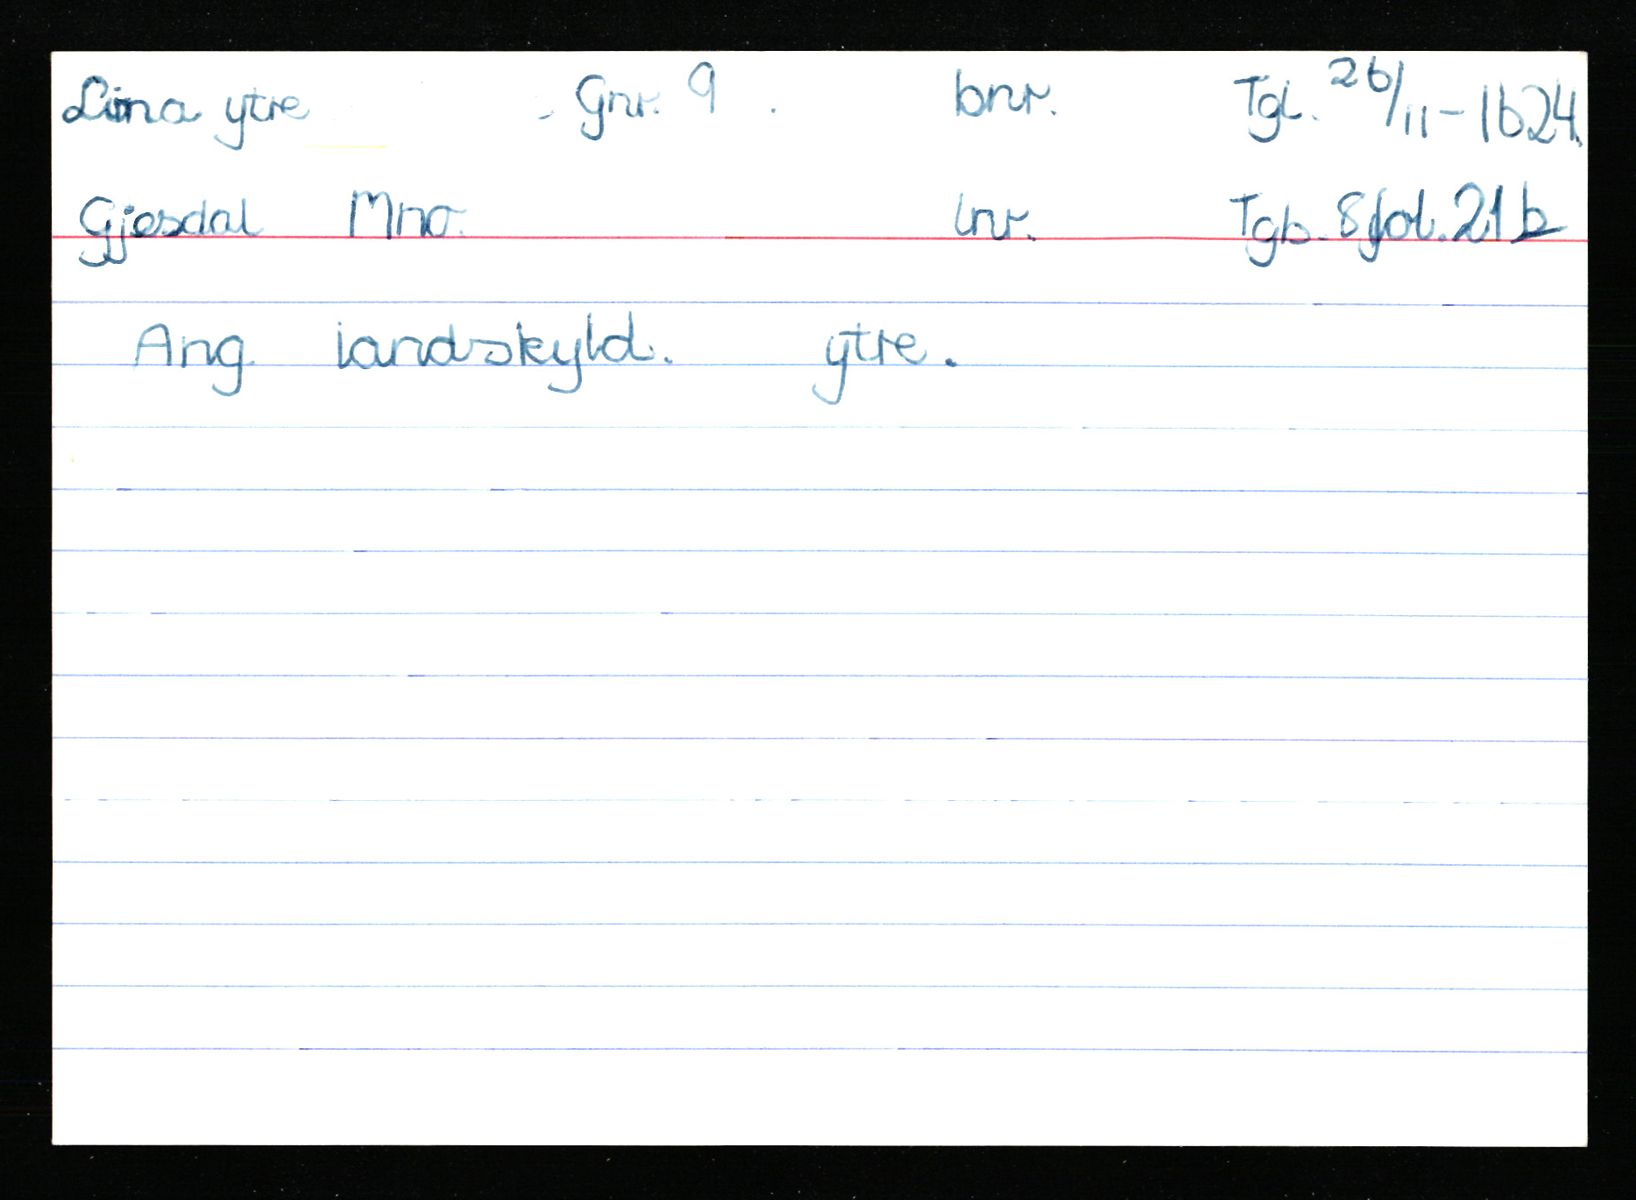 Lima ytre Gnr. 9. bnr. Tgl. 26/11-1624.
Gjesdal Mno. lnr. Tgb. 8 fol. 21 b
Ang landskyld. ytre.